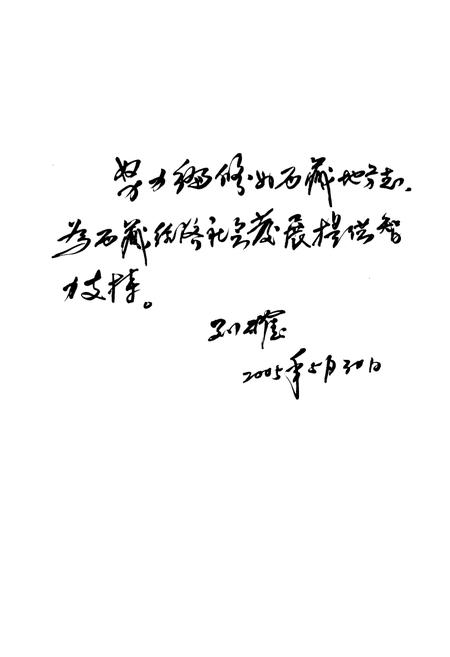 努力编修好西藏地方志,
為西藏经济社会发展提供智
力支持。
2005年5月30日